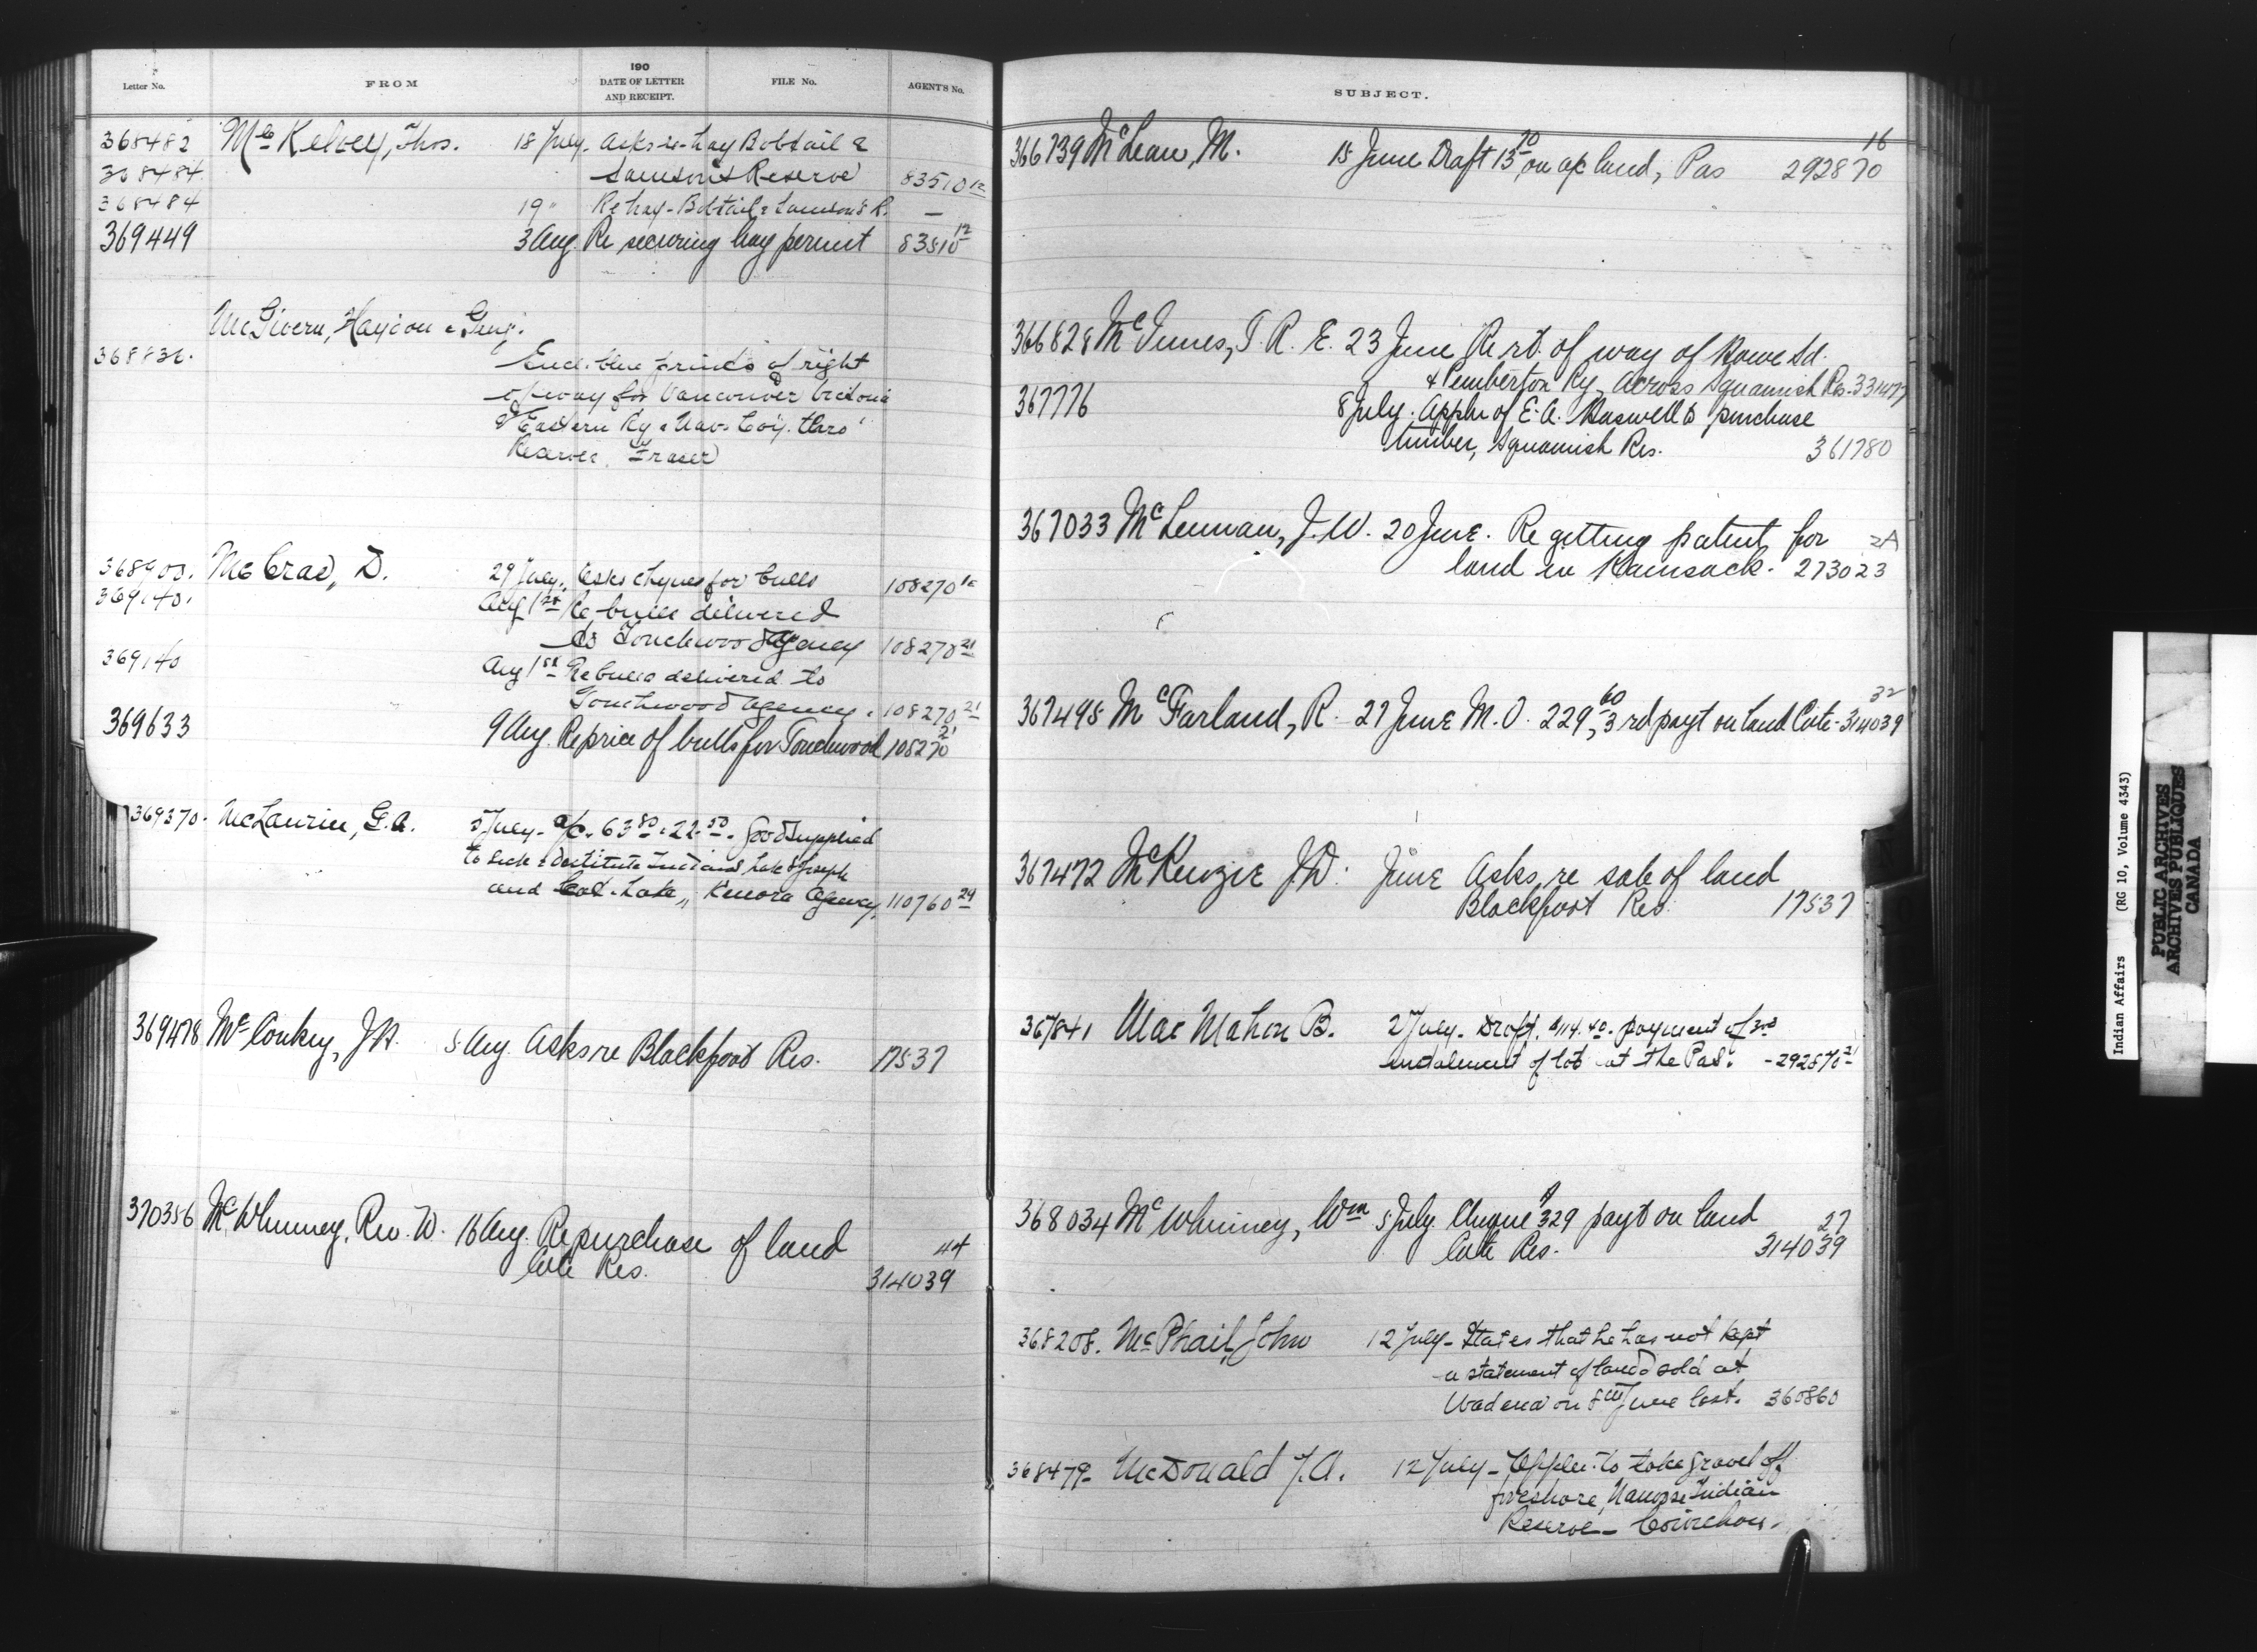 Letter No. FROM 190 DATE OF LETTER AND RECEIPT. FILE No. AGENT'S No.
368482 McKelvey, Thos. 18 July. Asks re hay Bobtail &
368484 Samson's Reserve 83510 12
368484 19 " Re hay - Bobtail & Samson's R. —
369449 3 Aug. Re securing hay permit 83510 12
McGivern, Haydon &
368836. Encl. blue prints of right
of way for Vancouver Victoria
& Eastern Ry & Nav. Coy. thro'
Reserves, Fraser
368900. McCrae, D. 29 July. Asks cheques for bulls 108270
369140. Aug 1st Re bulls delivered
to Touchwood Agency 108270 21
369140 Aug 1st Re bulls delivered to
Touchwood Agency. 108270 21
369633 9 Aug. Re price of bulls for Touchwood 108270 21
369370. McLaurin, G.A. 5 July - a/c. 63 80 & 22 50. Good supplied
to sick & destitute Indians Lake St Joseph
and Cat Lake, Kenora Agency, 110760 29
369478 McConkey, J.A. 5 Aug. Asks re Blackfoot Res. 17537
370356 McWhinney, Rev. W. 16 Aug. Re purchase of land 44
Cote Res. 314039
SUBJECT.
16
366739 McLean, M. 15 June Draft 13 70 on a/c land, Pas 292870
366828 McInnes, T. R. E. 23 June Re rt. of way of Howe Sd.
& Pemberton Ry. across Squamish Res. 331477
367776 8 July. Appln of E. A. Haswell to purchase
timber, Squamish Res. 361780
367033 McLennan, J. W. 20 June. Re getting patent for 2A
land in Kamsack. 273023
367498 McFarland, R. 27 June M.O. 229, 60 3rd payt on land Cote - 314039 32
367472 McKenzie J.D. June Asks re sale of land
Blackfoot Res. 17537
367841 MacMahon B. 2 July - Draft. $114.40. payment of 3rd
instalment of lot at the Pas. - 292870 21
368034 McWhinney, Wm 5 July. Cheque $329 payt on land 27
Cote Res. 314039
368208. McPhail, John 12 July - States that he has not kept
a statement of lands sold at
Wadena on 8th June last. 360860
368479 - McDonald J.A. 12 July - Appln. to take gravel off
foreshore, Nanoose Indian
Reserve - Cowichan.
Indian Affairs (RG 10, Volume 4343)
PUBLIC ARCHIVES
ARCHIVES PUBLIQUES
CANADA